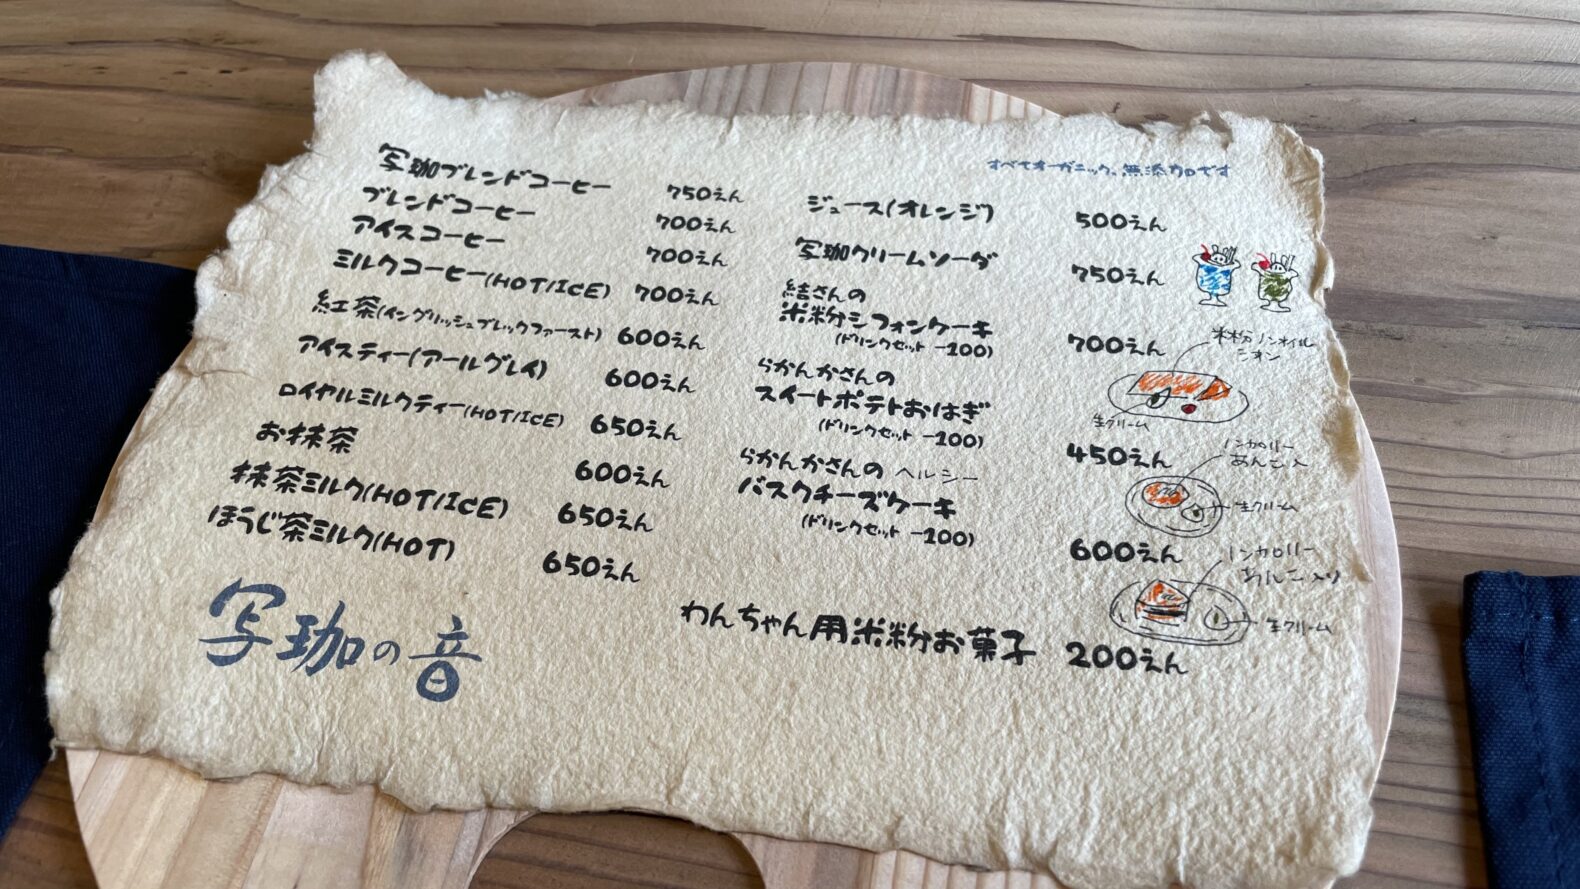 写珈ブレンドコーヒー 750えん
ブレンドコーヒー 700えん
アイスコーヒー 700えん
ミルクコーヒー(HOT/ICE) 700えん
紅茶(イングリッシュブレックファースト) 600えん
アイスティー(アールグレイ) 600えん
ロイヤルミルクティー(HOT/ICE) 650えん
お抹茶 600えん
抹茶ミルク(HOT/ICE) 650えん
ほうじ茶ミルク(HOT) 650えん
写珈の音
すべてオーガニック、無添加です
ジュース(オレンジ) 500えん
写珈クリームソーダ 750えん
結さんの
米粉シフォンケーキ 700えん
(ドリンクセット -100)
米粉ノンオイル
シフォン
生クリーム
らかんかさんの
スイートポテトおはぎ 450えん
(ドリンクセット -100)
ノンカロリー
あんこ入
生クリーム
らかんかさんの ヘルシー
バスクチーズケーキ 600えん
(ドリンクセット -100)
ノンカロリー
あんこ入り
生クリーム
わんちゃん用米粉お菓子 200えん